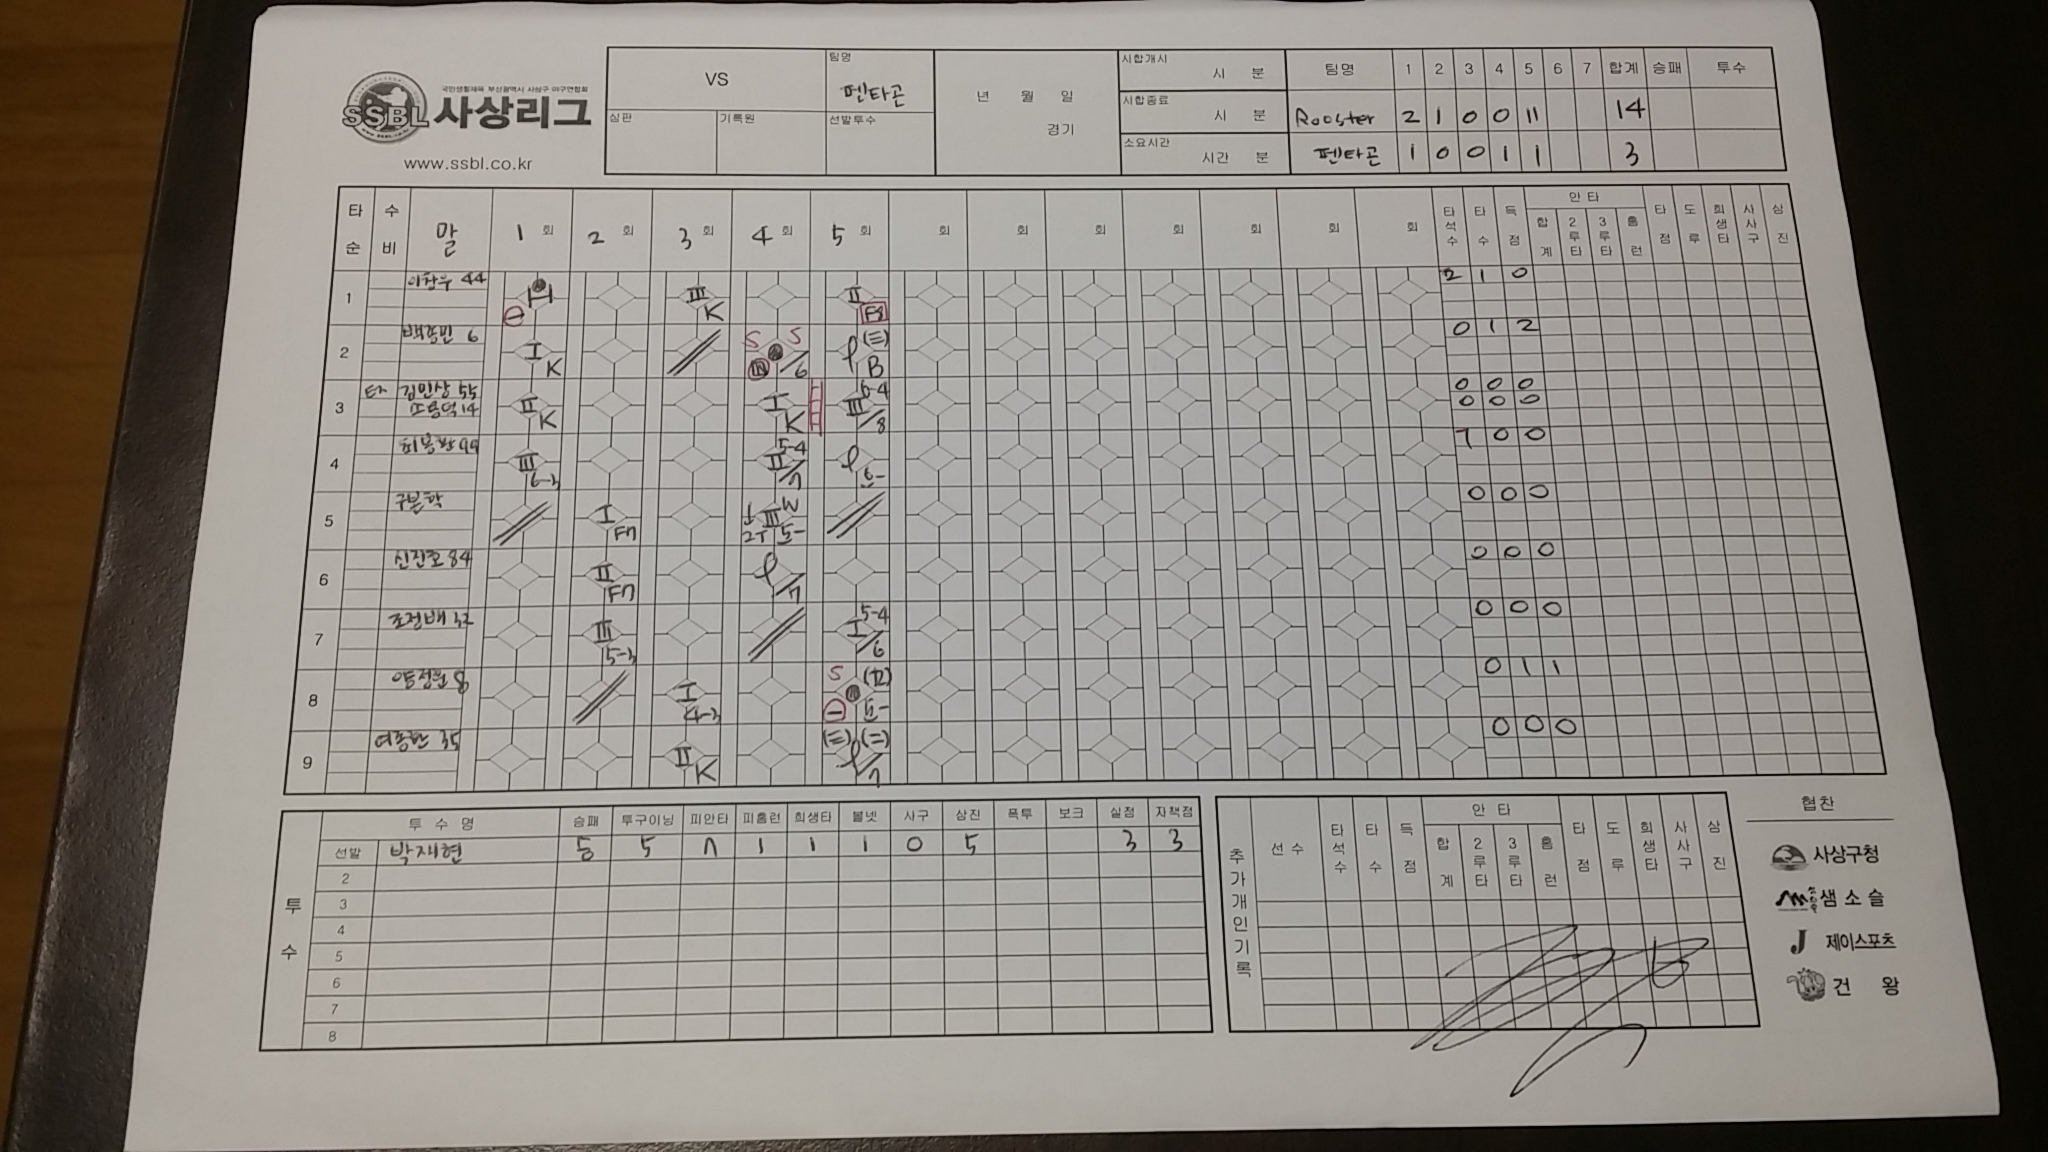 국민생활체육 부산광역시 사상구 야구연합회
SSBL 사상리그
www.ssbl.co.kr
VS
팀명
펜타곤
심판
기록원
선발투수
년 월 일
경기
시합개시
시 분
시합종료
시 분
소요시간
시간 분
팀명 1 2 3 4 5 6 7 합계 승패 투수
Rooster 2 1 0 0 11 14
펜타곤 1 0 0 1 1 3
타순 수비 말 1 회 2 회 3 회 4 회 5 회 회 회 회 회 회 회 회
타석수 타수 득점 안타 합계 2루타 3루타 홈런 타점 도루 희생타 사사구 상진
1 44 I III K II F8 2 1 0
2 6 I K S S /6 (三) B 0 1 2
3 김민상 55 II K I K III 6-4 /8 0 0 0
14 0 0 0
4 III 6-3 II 5-4 /7 6- 1 0 0
5 구본학 I F7 III W 5- 0 0 0
6 신진호 84 II F7 /7 0 0 0
7 32 III 5-3 I 5-4 /6 0 0 0
8 8 I 4-3 S 5- 0 1 1
9 35 II K (三) (二) /7 0 0 0
투수
투수명 승패 투구이닝 피안타 피홈런 희생타 볼넷 사구 삼진 폭투 보크 실점 자책점
선발 박재현 5 7 1 1 1 0 5 3 3
2
3
4
5
6
7
8
추가개인기록
선수 타석수 타수 득점 안타 합계 2루타 3루타 홈런 타점 도루 희생타 사사구 상진
협찬
사상구청
샘소슬
J 제이스포츠
건 왕